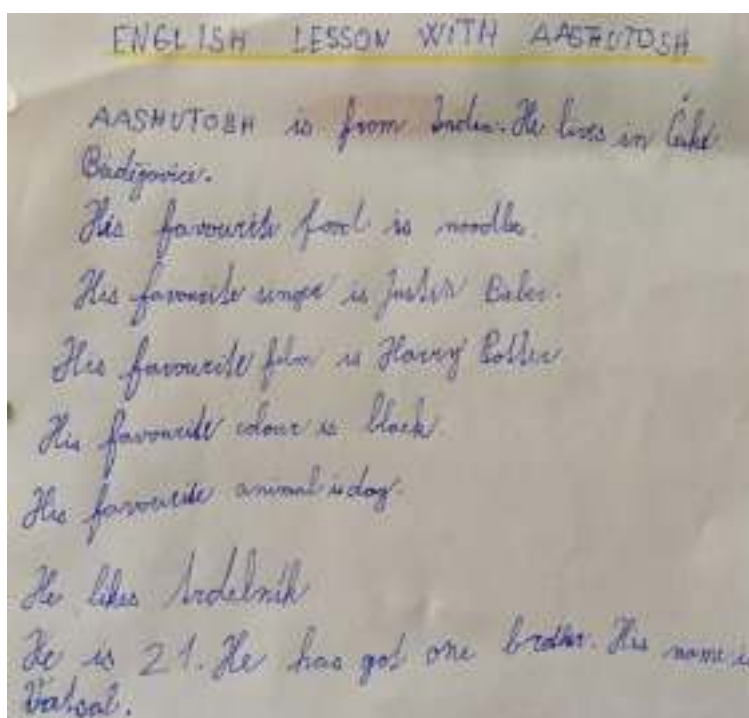 ENGLISH LESSON WITH AASHUTOSH
AASHUTOSH is from India. He lives in České
Budějovice.
His favourite food is noodles.
His favourite singer is Justin Bieber.
His favourite film is Harry Potter
His favourite colour is black.
His favourite animal is dog.
He likes trdelník
He is 21. He has got one brother. His name is
Vatsal.